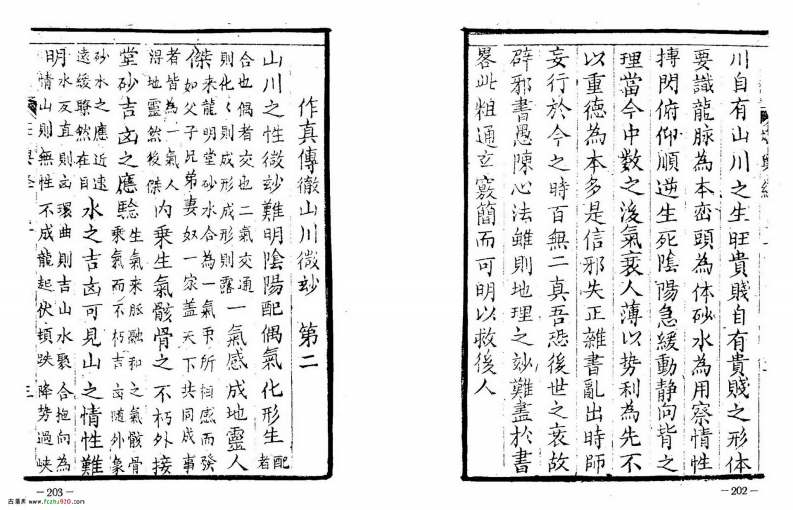 川自有山川之生旺貴賤自有貴賤之形体
要識龍脉為本峦頭為体砂水為用察情性
摶閃俯仰順逆生死陰陽急緩動静向背之
理當今中數之後氣衰人薄以势利為先不
以重德為本多是信邪失正雜書亂出時師
妄行於今之時百無二真吾恐後世之衰故
辟邪書愚陳心法雖則地理之玅難盡於書
畧此粗通玄竅簡而可明以救後人
—202—
作真傳徹山川微玅 第二
山川之性微玅難明陰陽配偶氣化形生配者
合也偶者交也二氣交通
則化化則成形成形則露一氣感成地靈人
傑來龍明堂砂水合為一氣乎所相感而發
傑如父子兄弟妻奴一家盖天下共同成事
者皆為一氣人
得地靈然後傑内乗生氣骸骨之不朽外接
堂砂吉凶之應驗生氣來脈融和之氣骸骨
乗氣而不朽吉凶随外象
砂水之應近速
遠緩瞭然在目水之吉凶可見山之情性難
明水反直則凶環曲則吉山水聚合抱向為
情山則無性不成龍起伏頓跌降势過峡
三
—203—
古易库 www.fczhu920.com